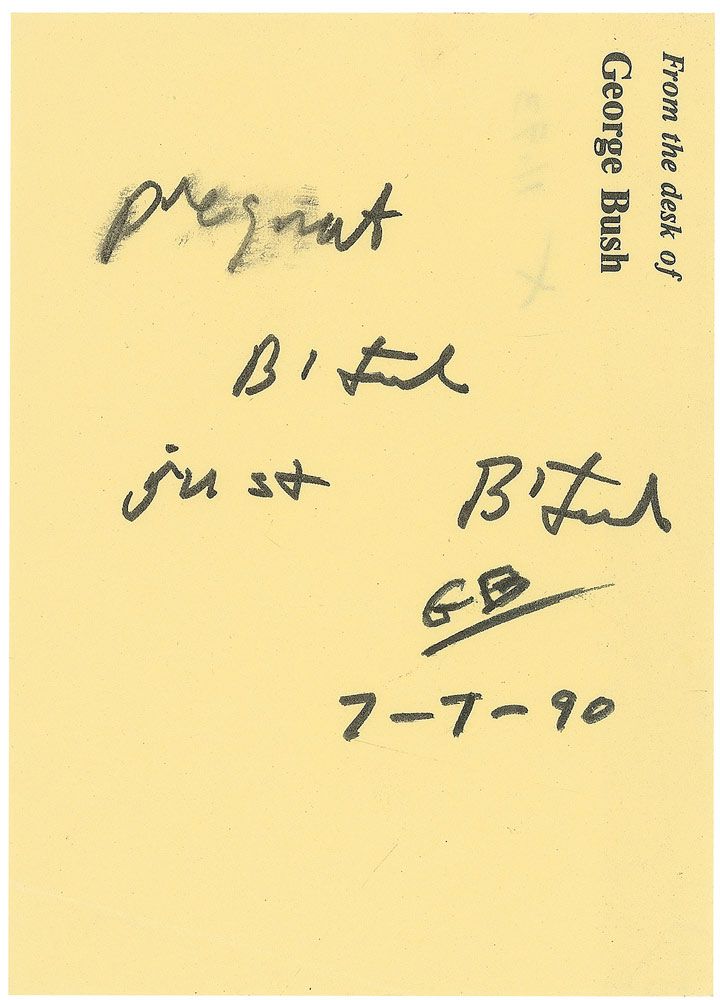 From the desk of
George Bush
pregnat
B'ful
just B'ful
GB
7-7-90